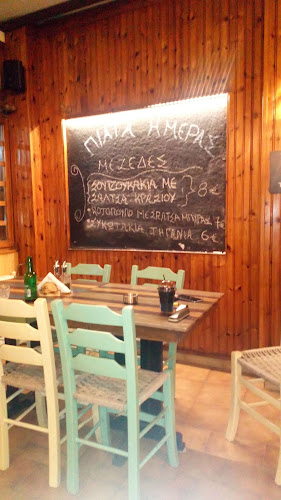 ΠΙΑΤΑ ΗΜΕΡΑΣ
ΜΕΖΕΔΕΣ
ΣΟΥΤΖΟΥΚΑΚΙΑ ΜΕ
ΣΑΛΤΣΑ ΚΡΑΣΙΟΥ 8€
ΚΟΤΟΠΟΥΛΟ ΜΕ ΣΑΛΤΣΑ ΜΠΥΡΑΣ 7€
ΣΥΚΩΤΑΚΙΑ ΤΗΓΑΝΙΑ 6€